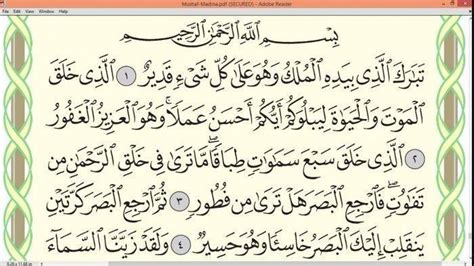 Mushaf-Madina.pdf (SECURED) - Adobe Reader
بِسْمِ ٱللَّهِ ٱلرَّحْمَٰنِ ٱلرَّحِيمِ
تَبَٰرَكَ ٱلَّذِى بِيَدِهِ ٱلْمُلْكُ وَهُوَ عَلَىٰ كُلِّ شَىْءٍ قَدِيرٌ ١ ٱلَّذِى خَلَقَ
ٱلْمَوْتَ وَٱلْحَيَوٰةَ لِيَبْلُوَكُمْ أَيُّكُمْ أَحْسَنُ عَمَلًا ۚ وَهُوَ ٱلْعَزِيزُ ٱلْغَفُورُ
٢ ٱلَّذِى خَلَقَ سَبْعَ سَمَٰوَٰتٍ طِبَاقًا ۖ مَّا تَرَىٰ فِى خَلْقِ ٱلرَّحْمَٰنِ مِن
تَفَٰوُتٍ ۖ فَٱرْجِعِ ٱلْبَصَرَ هَلْ تَرَىٰ مِن فُطُورٍ ٣ ثُمَّ ٱرْجِعِ ٱلْبَصَرَ كَرَّتَيْنِ
يَنقَلِبْ إِلَيْكَ ٱلْبَصَرُ خَاسِئًا وَهُوَ حَسِيرٌ ٤ وَلَقَدْ زَيَّنَّا ٱلسَّمَآءَ